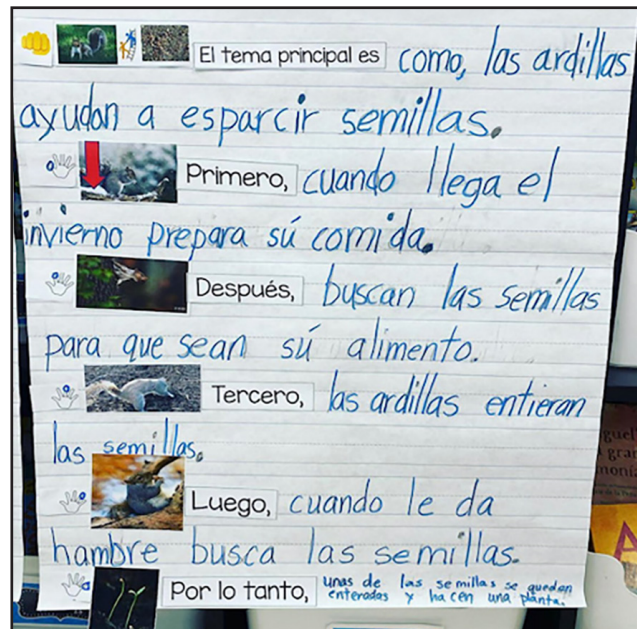 El tema principal es como, las ardillas
ayudan a esparcir semillas.
Primero, cuando llega el
invierno prepara sú comida.
Después, buscan las semillas
para que sean sú alimento.
Tercero, las ardillas entieran
las semillas.
Luego, cuando le da
hambre busca las semillas.
Por lo tanto, unas de las semillas se quedan
enteradas y hacen una planta.